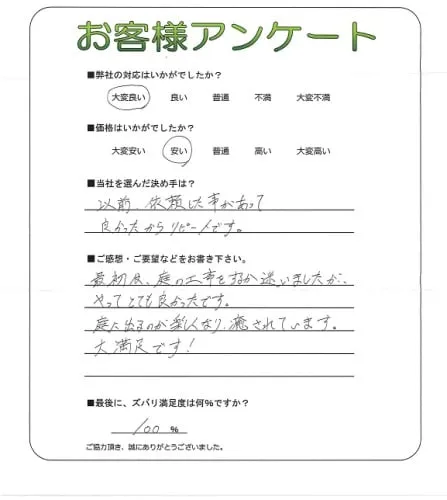 お客様アンケート
■弊社の対応はいかがでしたか？
大変良い 良い 普通 不満 大変不満
■価格はいかがでしたか？
大変安い 安い 普通 高い 大変高い
■当社を選んだ決め手は？
以前、依頼した事があって
良かったからリピートです。
■ご感想・ご要望などをお書き下さい。
最初は、庭の工事をするか迷いましたが、
やってとても良かったです。
庭に出るのが楽しくなり、癒されています。
大満足です！
■最後に、ズバリ満足度は何％ですか？
100 %
ご協力頂き、誠にありがとうございました。